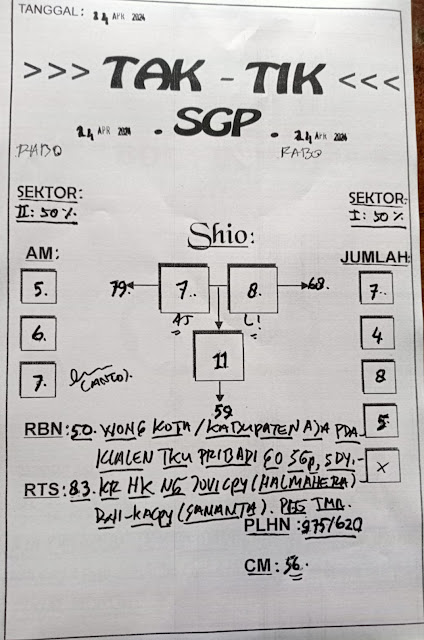 TANGGAL: 24 APR 2024
>>> TAK - TIK <<<
24 APR 2024 . SGP . 24 APR 2024
RABO RABO
SEKTOR: SEKTOR:
II: 50% I: 50%
Shio:
AM: JUMLAH:
5. 79. 7.. 8. 68. 7..
AS L!
6. 4
11
7. 8
59
RBN: 50. WONG KOTA / KABUPATEN PDA 5
TKU PRIBADI GO SGP, SDY.- X
RTS: 83. KR HK NG (HALMAHERA)
(SAMANTA). PBS
PLHN: 975/620
CM: 56.